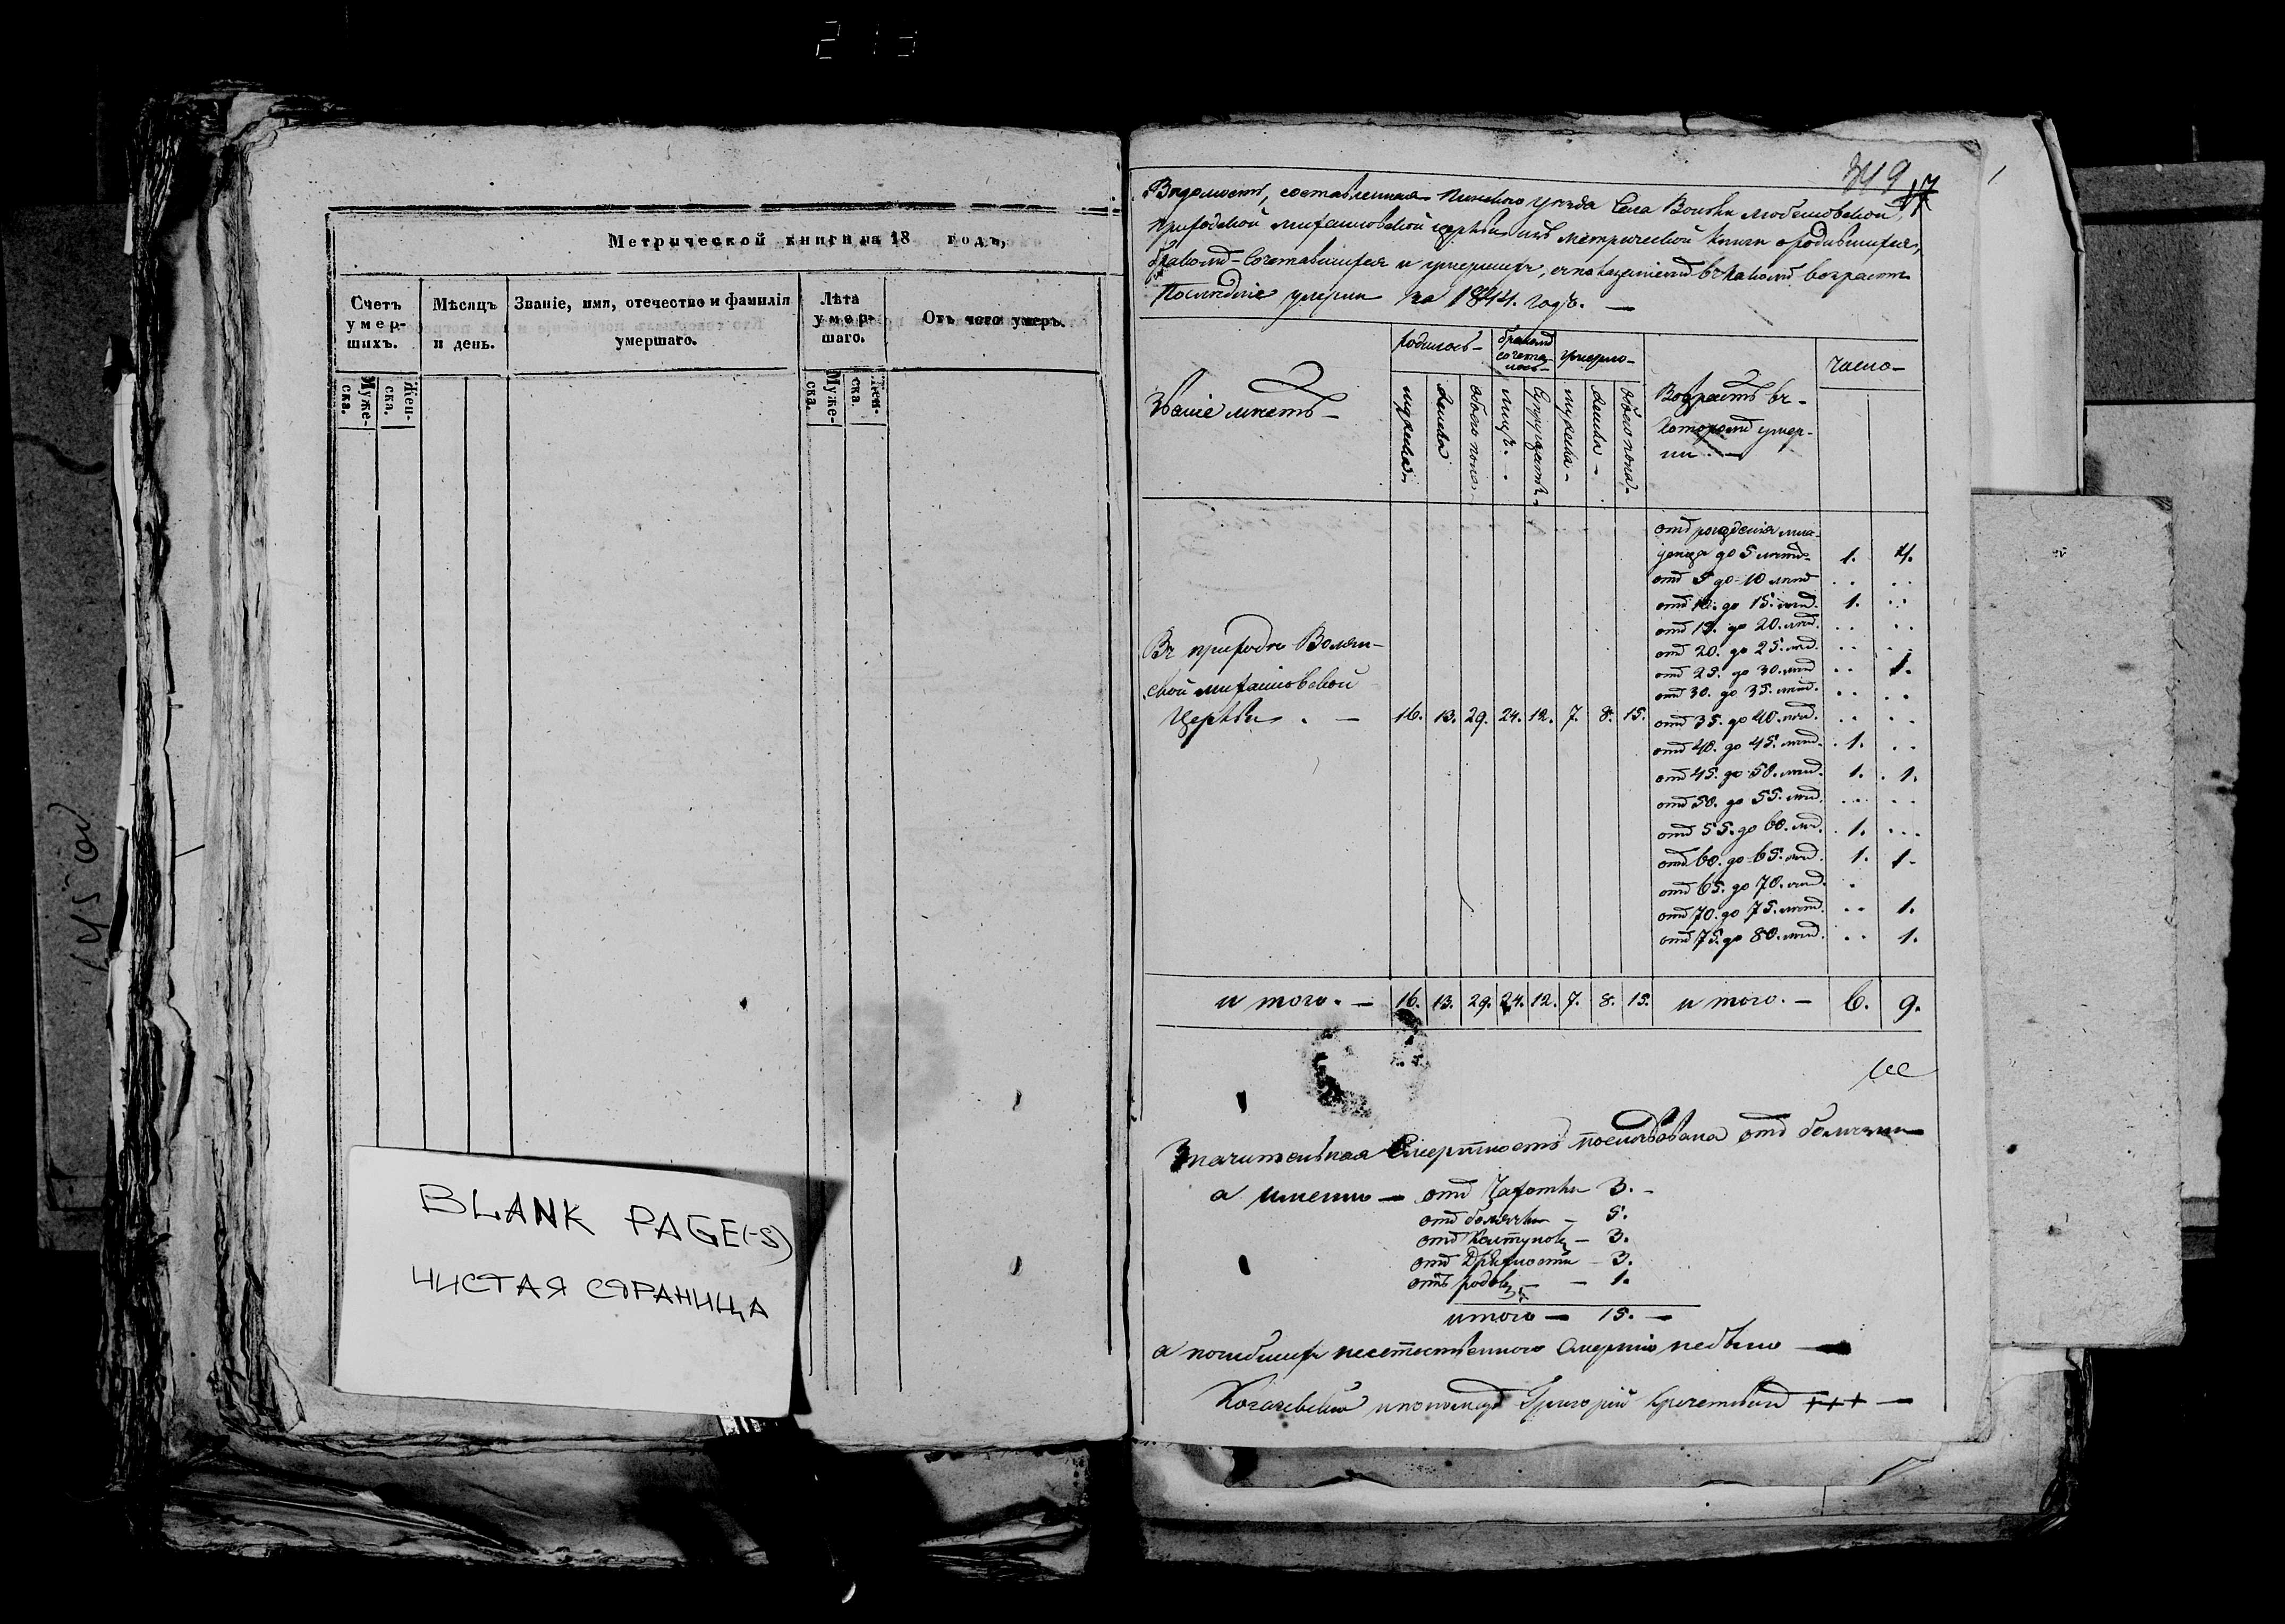 213
Метрической книги на 18 годъ,
Счетъ умер-шихъ.
Мѣсяцъ и день.
Званіе, имя, отечество и фамилія умершаго.
Лѣта умер-шаго.
Отъ чего умеръ.
Муже-ска.
Жен-ска.
Муже-ска.
Жен-ска.
BLANK PAGE(-S)
ЧИСТАЯ СТРАНИЦА
349
17
Вѣдомость, составленная Пинскаго уѣзда Села
приходской церкви изъ метрической книги о родившихся,
бракомъ-Сочетавшихся и умершихъ, съ показаніемъ въ какомъ возрастѣ
Послѣдніе умерли за 1844. годъ. —
Званіе мѣстъ —
родилось —
бракомъ сочета-лось —
умерло —
Возрастъ въ-
которомъ умер-
ли. —
число —
мужеска
женска
обоего пола
лицъ. —
Супружествъ. —
мужеска —
женска —
обоего пола. —
отъ рожденія мла-
денца до 5 лѣтъ 1. 4.
отъ 5 до 10 лѣтъ .. ..
отъ 10. до 15. лѣтъ. 1. ..
отъ 15. до 20. лѣтъ. .. ..
отъ 20. до 25. лѣтъ. .. ..
отъ 25. до 30. лѣтъ .. 1.
отъ 30. до 35. лѣтъ. .. ..
отъ 35. до 40. лѣтъ. .. ..
отъ 40. до 45. лѣтъ. 1. ..
отъ 45. до 50. лѣтъ. 1. 1.
отъ 50. до 55. лѣтъ. .. ..
отъ 55. до 60. лѣтъ. 1. ...
отъ 60. до 65. лѣтъ. 1. 1.
отъ 65. до 70. лѣтъ. .
отъ 70. до 75. лѣтъ. .. 1.
отъ 75. до 80. лѣтъ. .. 1.
Въ приходѣ
Церкви . — 16. 13. 29. 24. 12. 7. 8. 15.
и того. — 16. 13. 29. 24. 12. 7. 8. 15. и того. — 6. 9.
Значительная Смертность послѣдовала отъ
а именно — отъ Чахотки 3. —
отъ — 5.
отъ — 3.
отъ Дряхлости — 3.
отъ родовъ — 1.
итого — 15. —
а погибшихъ неестественною Смертію небыло —
пономарь Григорій +++ —